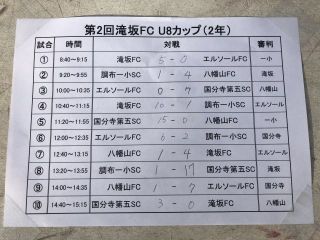 第2回滝坂FC U8カップ(2年)
試合 時間 対戦 審判
① 8:40~9:15 滝坂FC 5-0 エルソールFC 一小
② 9:20~9:55 調布一小SC 1-4 八幡山FC 滝坂
③ 10:00~10:35 エルソールFC 0-7 国分寺第五SC 八幡山
④ 10:40~11:15 滝坂FC 10-1 調布一小SC エルソール
⑤ 11:20~11:55 国分寺第五SC 15-0 八幡山FC 一小
⑥ 12:00~12:35 エルソールFC 6-2 調布一小SC 国分寺
⑦ 12:40~13:15 八幡山FC 1-4 滝坂FC エルソール
⑧ 13:20~13:55 調布一小SC 1-17 国分寺第五SC 滝坂
⑨ 14:00~14:35 八幡山FC 1-7 エルソールFC 国分寺
⑩ 14:40~15:15 国分寺第五SC 3-0 滝坂FC 八幡山